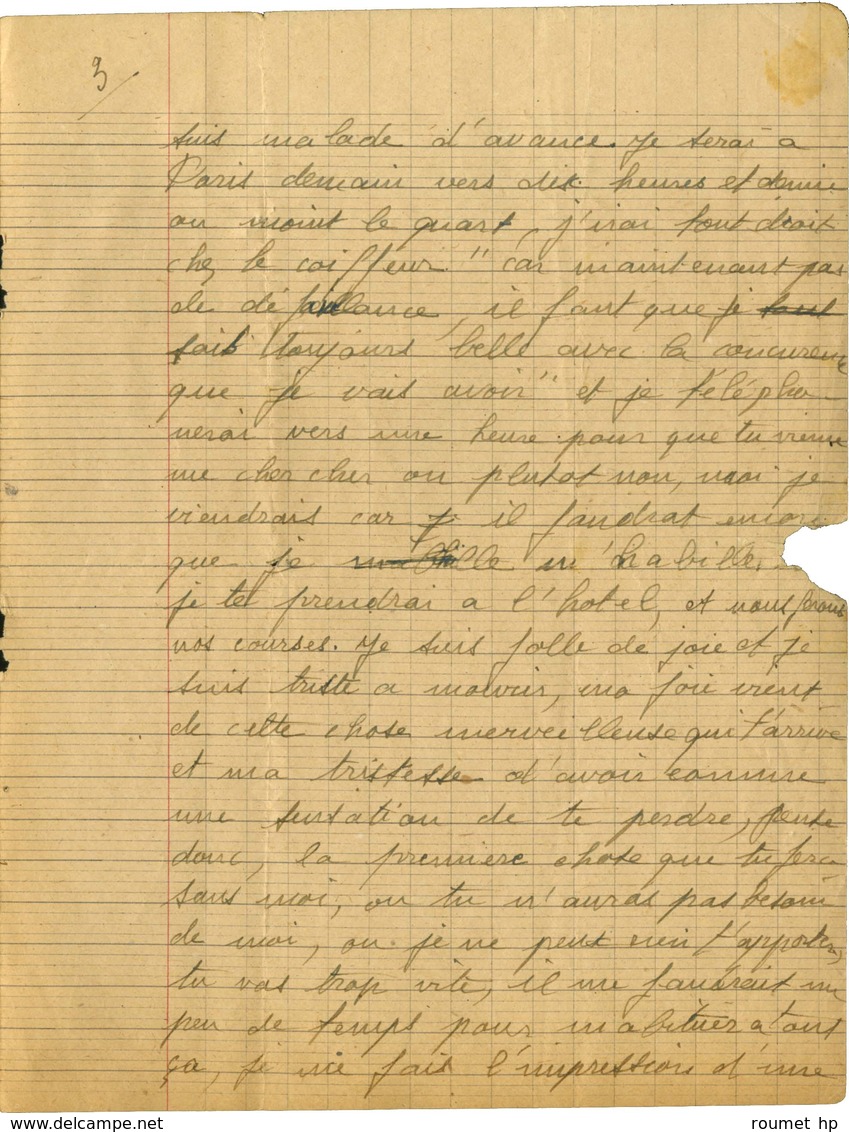 3
suis malade d'avance. je serai a
Paris demain vers dix heures et demie
ou moint le quart, j'irai tout droit
chez le coiffeur "car maintenant pas
de défaillance, il faut que je faut
sois toujours belle avec la concurence
que je vais avoir" et je télépho-
nerai vers une heure pour que tu vienne
me chercher ou plutot non, moi je
viendrais car il faudrat encore
que je m'habille,
je te prendrai a l'hotel, et nous ferons
nos courses. je suis folle de joie et je
suis triste a mourir, ma joie vient
de cette chose merveilleuse qui t'arrive
et ma tristesse d'avoir comme
une sensation de te perdre, pense
donc, la première chose que tu fera
sans moi, ou tu n'auras pas besoin
de moi, ou je ne peut rien t'apporter,
tu vas trop vite, il me faudrait un
peu de temps pour m'abituer a tout
ça, je me fais l'impression d'une
roumet hp